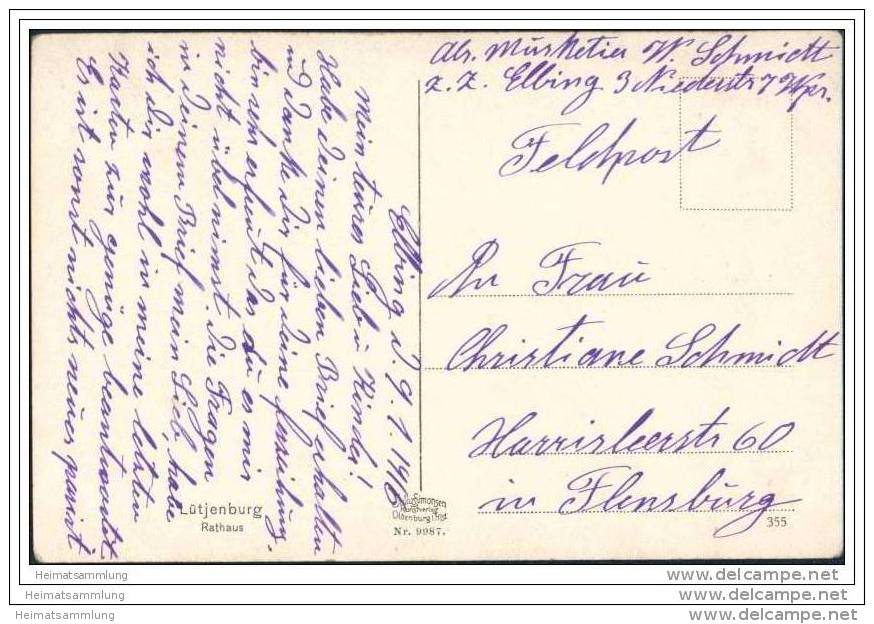 Abs. Musketier W. Schmidt
z. Z. Elbing 3 Niederstr 7 Wpr.
Feldpost
An Frau
Christiane Schmidt
Harrisleerstr 60
in Flensburg
Elbing d 9.1.
Mein teures Lieb u Kinder!
Habe deinen lieben Brief erhalten
und danke dir für deine
bin sehr erfreut das du es mir
nicht übel nimst. Die Fragen
in deinem Brief mein Lieb, habe
ich dir wohl in meine letzten
Karten zur genüge beantwortet
Er ist sonst nichts neues passirt
Lütjenburg
Rathaus
Simonsen
Kunstverlag
Oldenburg i. Holst.
Nr. 9987.
355
Heimatsammlung
Heimatsammlung
www.delcampe.net
www.delcampe.net
www.delcampe.net